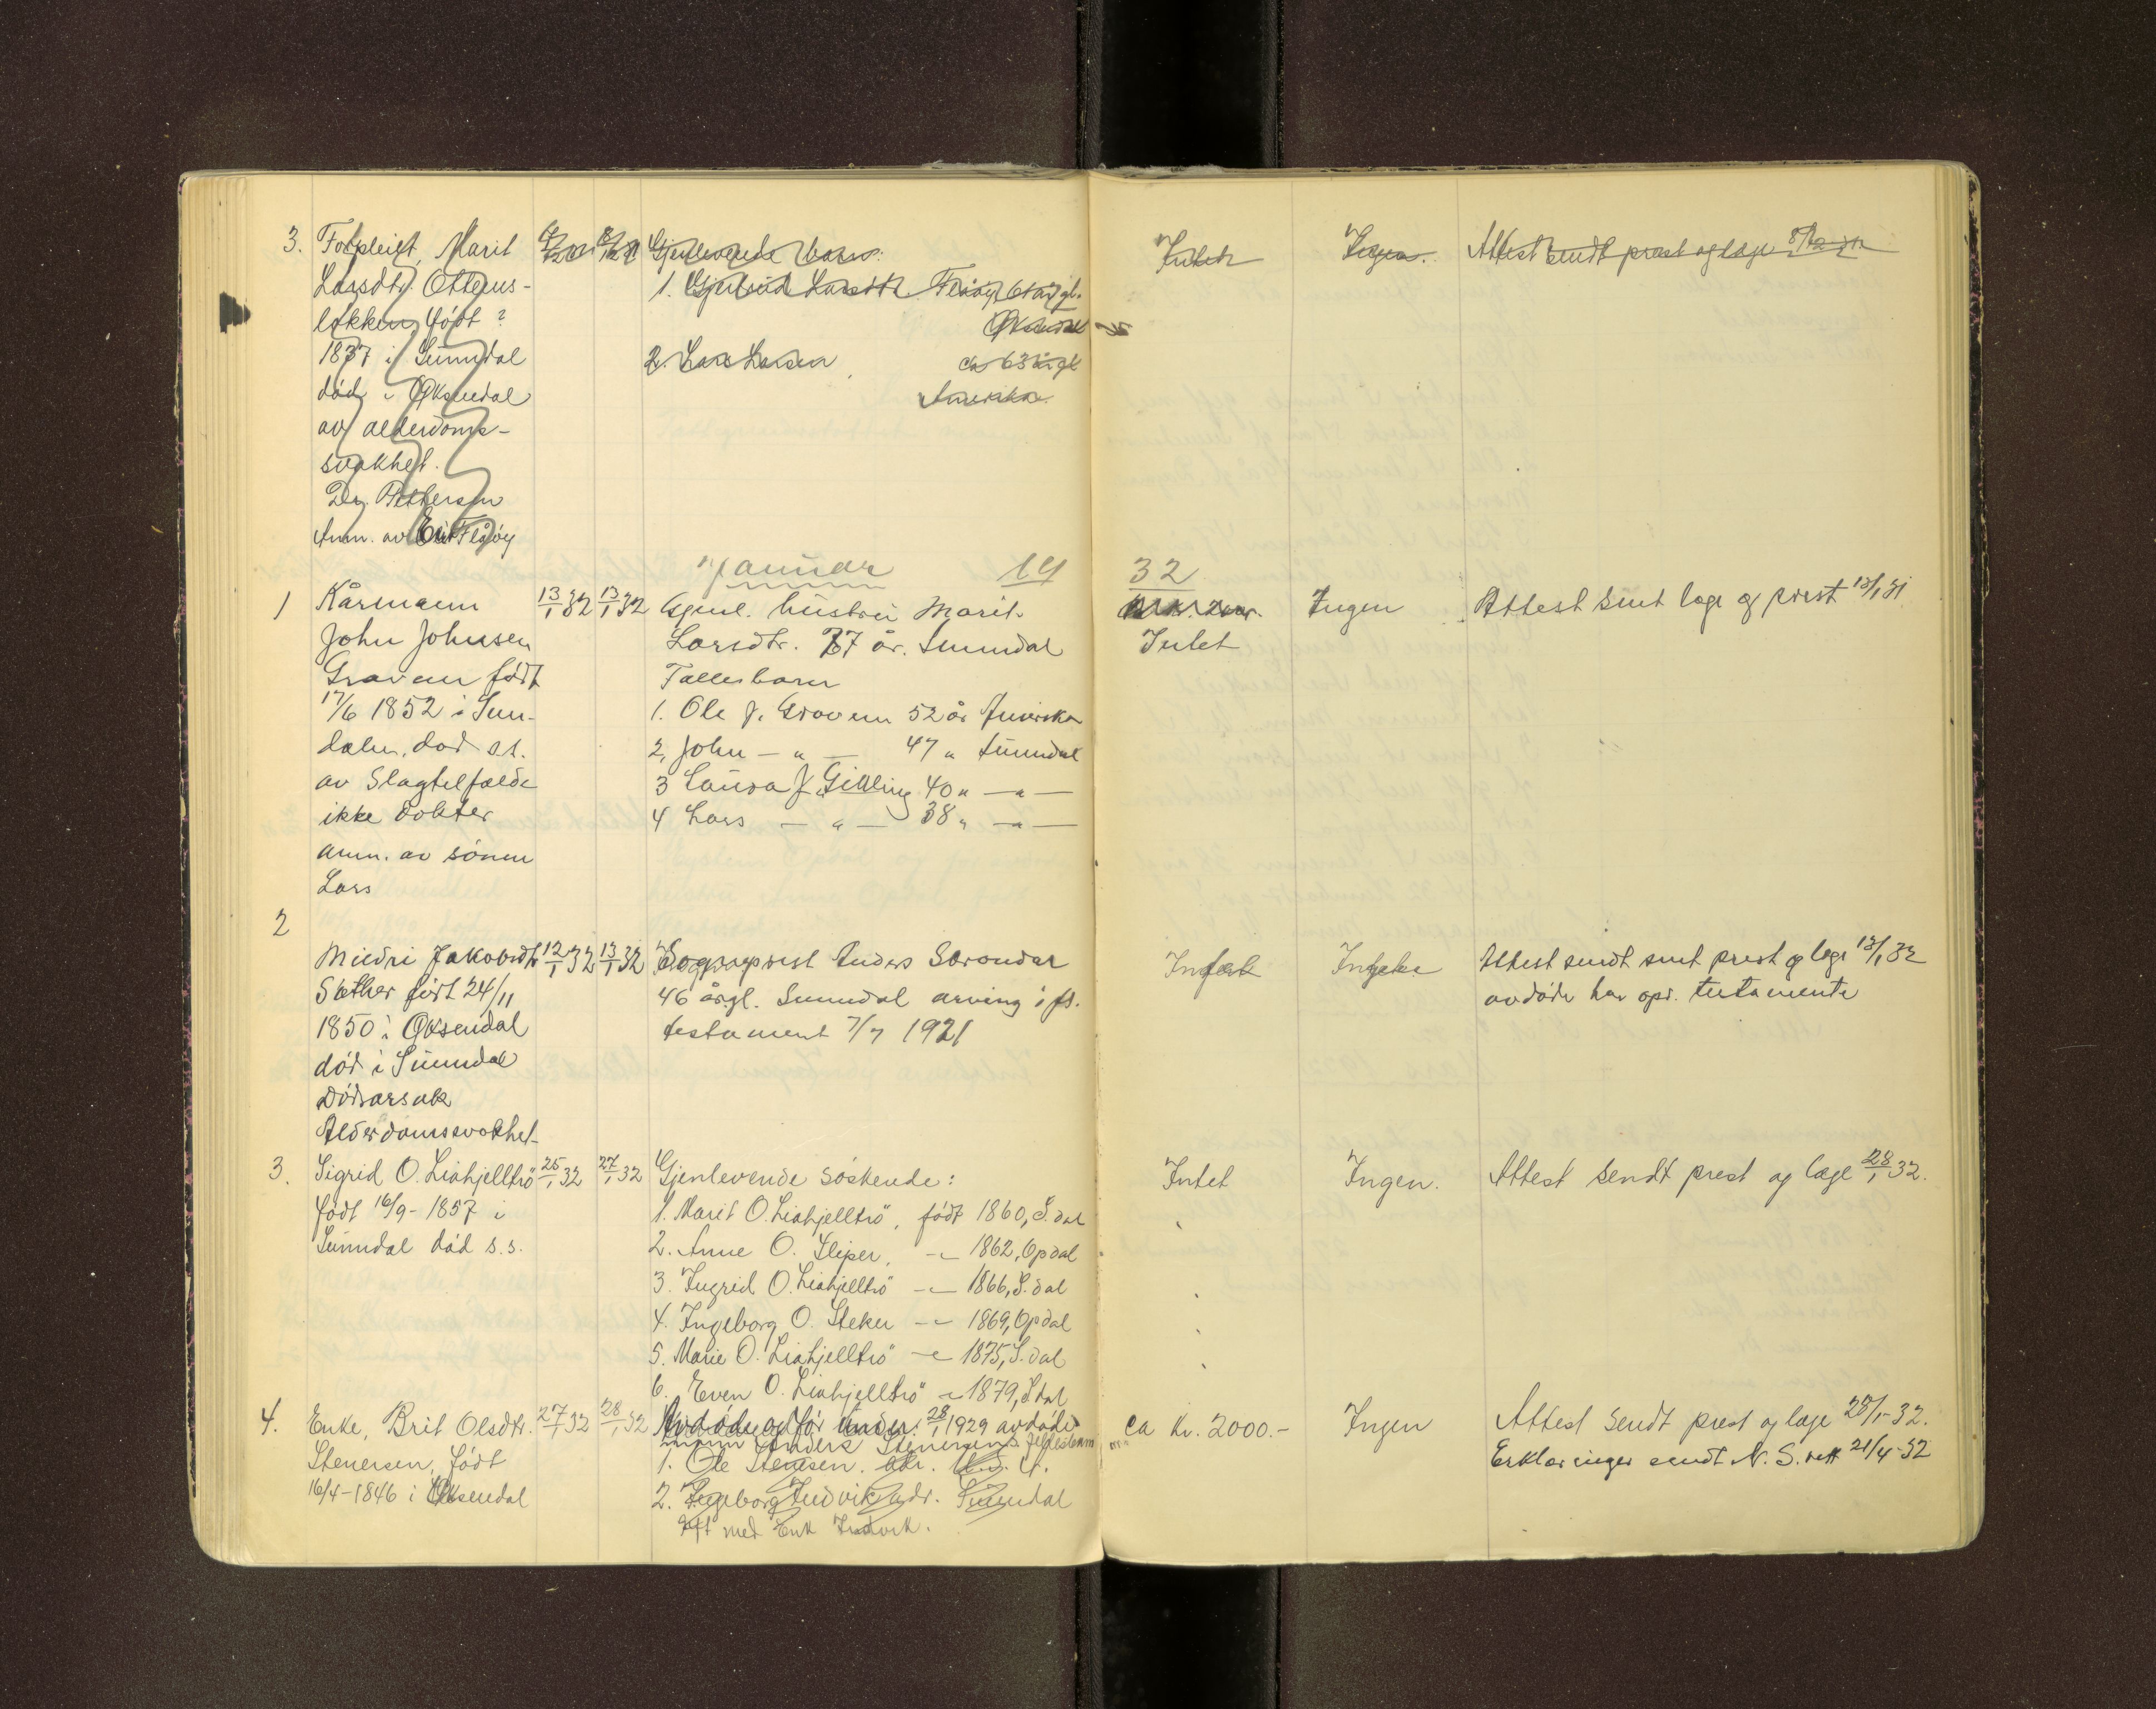 3. Forpleiet, Marit
Larsdtr. Ottenus-
løkken født ?
1837 i Sunndal
død i Øksendal
av alderdoms-
svakhet.
Dr. Pettersen
Anm. av Erik Flåøy
Gjenlevende barn:
1. Gjertrud Larsdtr. Flåøy 61 år gl.
Øksendal
2. Lars Larsen ca 63 år gl
Amerika
Intet
Ingen.
Attest sendt prest og læge
Januar 19 32
1 Kårmann
John Johnsen
Gravem født
17/6 1852 i Sun-
daln, død s.s.
av Slagtilfælde
ikke Dokter
anm. av sønnen
Lars
13/1 32 13/1 32
Gjenl. hustru Marit
Larsdtr. 77 år. Sunndal
Fællesbarn
1. Ole J. Gravem 52 år Amerika
2, John — " — 47 " Sunndal
3 Laura J. Gikling 40 " — " —
4 Lars — " — 38 " — " —
Intet
Ingen
Attest sent læge og prest 13/1 31
2
Mildri Jakobsdtr
Sæther født 24/11
1850 i Øksendal
død i Sunndal
Dødsarsak
Alderdomssvakhet
12/1 32 13/1 32
Sogneprest Anders
46 år gl. Sunndal arving i fl.
testament 7/7 1921
Intet
Attest sendt sent prest og læge 13/1 32
avdøde har opr. testamente
3. Sigrid O. Liahjelltrö
født 16/9 - 1857 i
Sunndal død s.s.
25/1 32 27/1 32
Gjenlevende søskende:
1. Marit O. Liahjelltrö, født 1860, S.dal
2. Anne O. Sliper, — " — 1862, Opdal
3. Ingrid O. Liahjelltrö — " — 1866, S.dal
4. Ingeborg O. Steker — " — 1869, Opdal
5. Marie O. Liahjelltrö — " — 1875, S.dal
6. Even O. Liahjelltrö — " — 1879, S.dal
Intet
Ingen.
Attest sendt prest og læge 28/1 32.
4. Enke, Brit Olsdtr.
Stenersen, født
16/4 - 1846 i Øksendal
27/1 32 28/1 32
Avdøde og før 28/1 1929 avdøde
mann Anders Stenersens fellesbarn
1. Ole Stenersen.
2. Ingeborg Indvik adr. Sunndal
gift med Erik Indvik.
ca kr. 2000.-
Ingen
Attest sendt prest og læge 28/1 - 32.
Erklæringer sendt N. S. rett 21/4 - 32